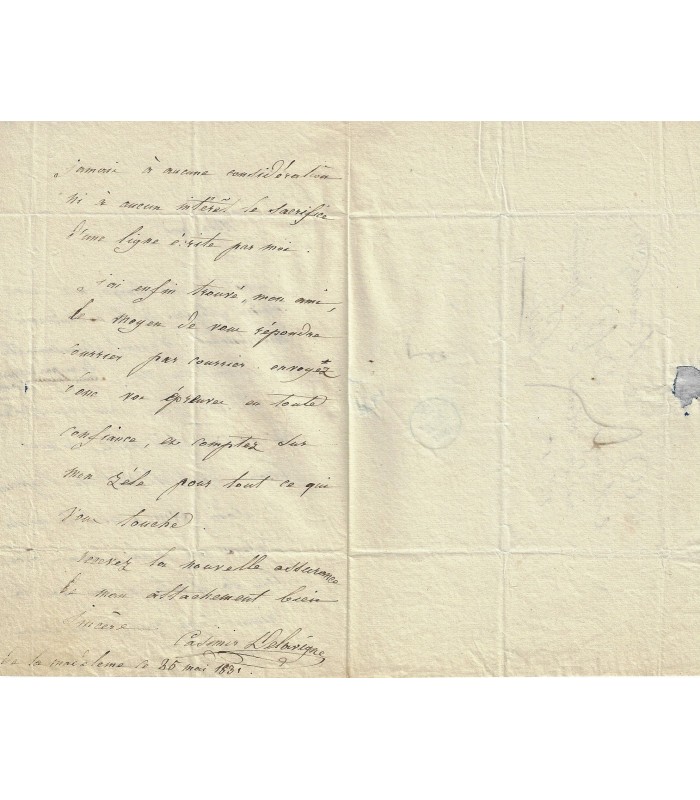 jamais à aucune considération
ni à aucun intérêt le sacrifice
d'une ligne écrite par moi.
j'ai enfin trouvé, mon ami,
le moyen de vous répondre
courrier par courrier. envoyez
donc vos épreuves en toute
confiance, et comptez sur
mon zèle pour tout ce qui
vous touche.
recevez la nouvelle assurance
de mon attachement bien
sincère
Casimir Delavigne
de la madeleine ce 25 mai 183